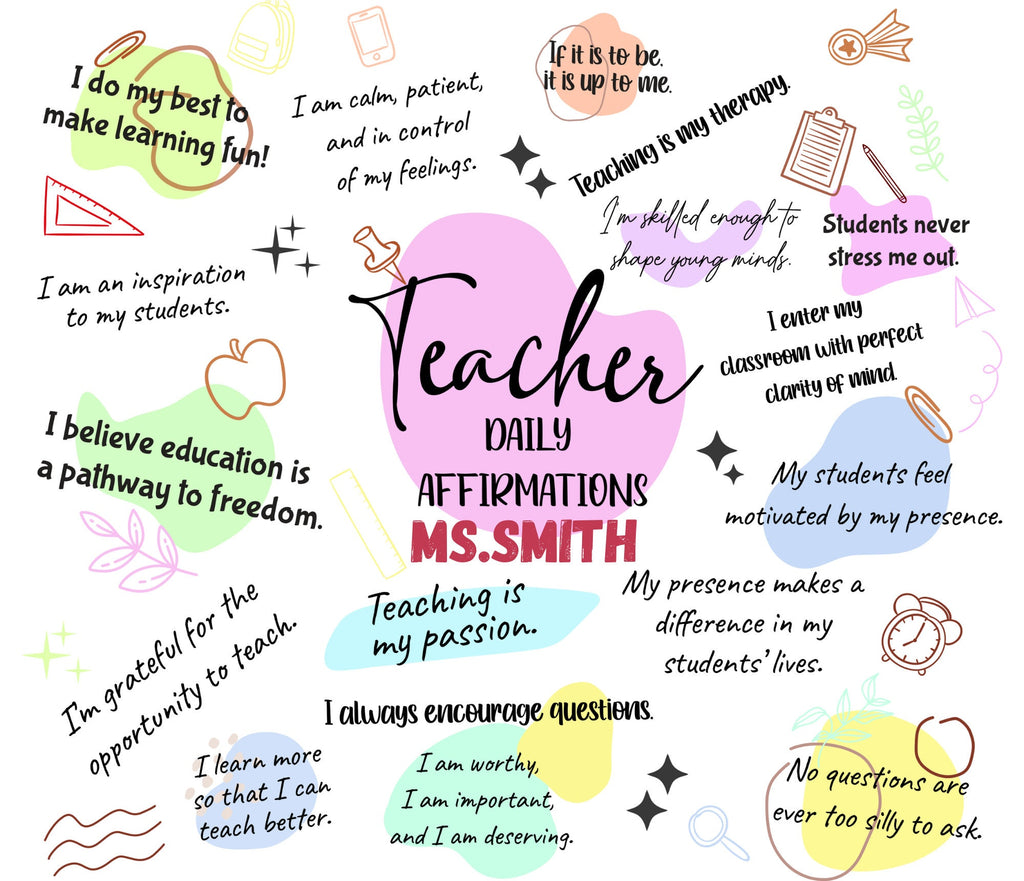 I do my best to
make learning fun!
I am calm, patient,
and in control
of my feelings.
If it is to be,
it is up to me.
Teaching is my therapy.
I'm skilled enough to
shape young minds.
Students never
stress me out.
I am an inspiration
to my students.
I enter my
classroom with perfect
clarity of mind.
Teacher
DAILY
AFFIRMATIONS
MS.SMITH
I believe education is
a pathway to freedom.
My students feel
motivated by my presence.
I'm grateful for the
opportunity to teach.
Teaching is
my passion.
My presence makes a
difference in my
students' lives.
I always encourage questions.
I learn more
so that I can
teach better.
I am worthy,
I am important,
and I am deserving.
No questions are
ever too silly to ask.